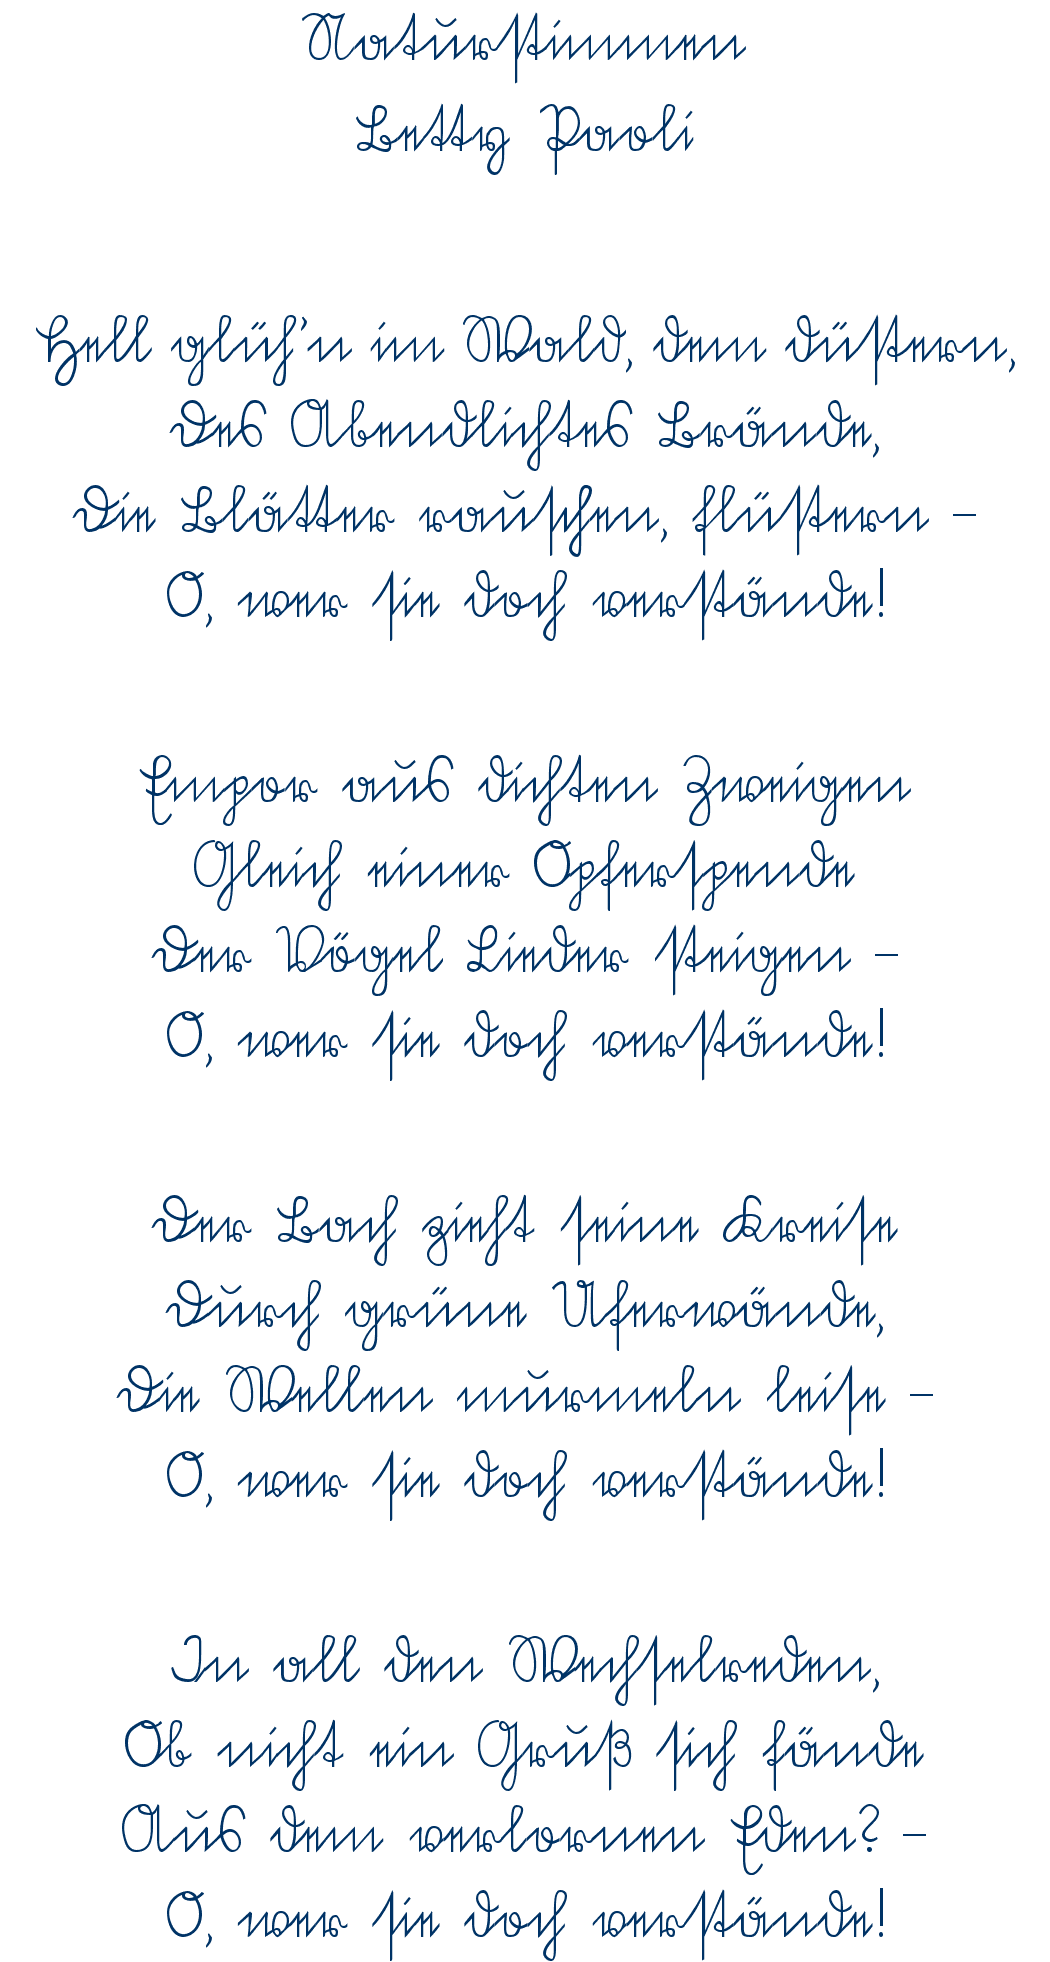 Naturstimmen
Betty Paoli
Hell glüh'n im Wald, dem düstern,
Des Abendlichtes Brände,
Die Blätter rauschen, flüstern –
O, wer sie doch verstände!
Empor aus dichten Zweigen
Gleich einer Opferspende
Der Vögel Lieder steigen –
O, wer sie doch verstände!
Der Bach zieht seine Kreise
Durch grüne Uferwände,
Die Wellen murmeln leise –
O, wer sie doch verstände!
In all den Wechselreden,
Ob nicht ein Gruß sich fände
Aus dem verlornen Eden? –
O, wer sie doch verstände!